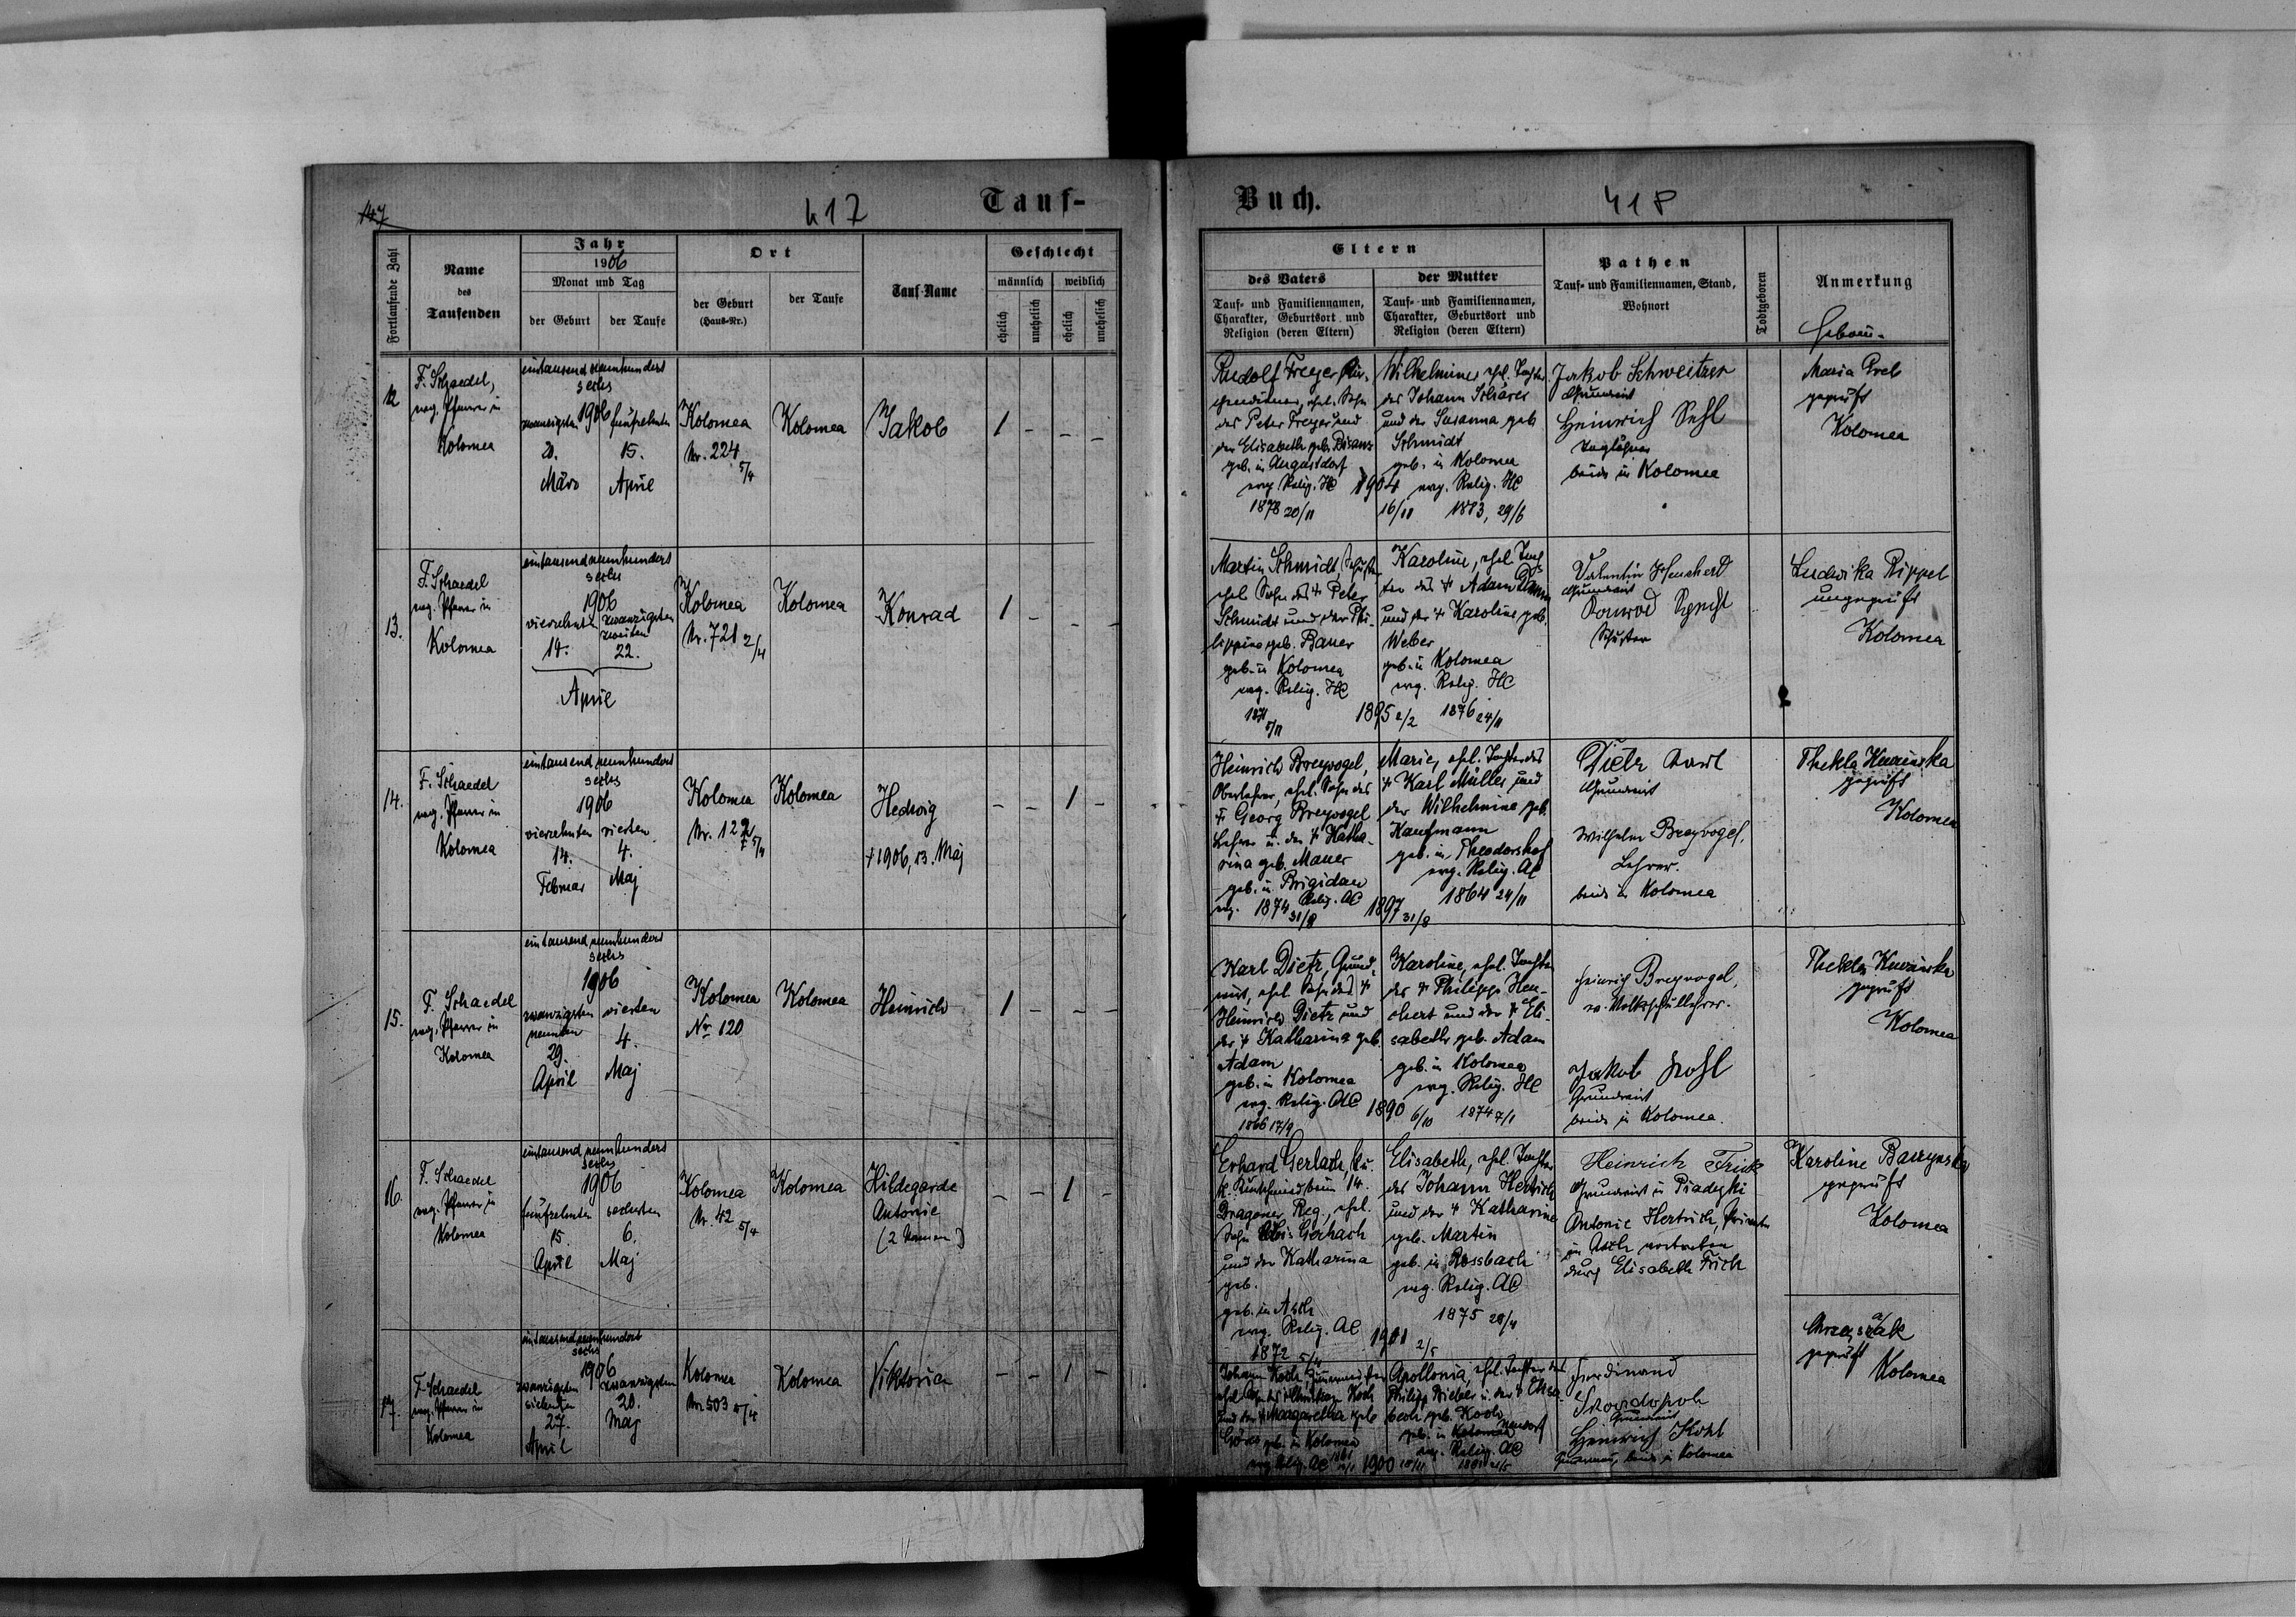 147
417
Tauf-
Fortlaufende Zahl
Name
des
Taufenden
Jahr
1906
Monat und Tag
der Geburt
der Taufe
Ort
der Geburt
(Haus-Nr.)
der Taufe
Tauf-Name
Geschlecht
männlich
weiblich
ehelich
unehelich
ehelich
unehelich
12
F. Schaedel,
evg. Pfarrer in
Kolomea
eintausend neunhundert
sechs
1906
zwanzigsten
20.
März
fünfzehnten
15.
April
Kolomea
Nr. 224
5/4
Kolomea
Jakob
1 - - -
13.
F. Schaedel
evg. Pfarrer in
Kolomea
eintausend neunhundert
sechs
1906
vierzehnten
14.
zwanzigsten
zweiten
22.
April
Kolomea
Nr. 721 2/4
Kolomea
Konrad
1 - - -
14.
F. Schaedel
evg. Pfarrer in
Kolomea
eintausend neunhundert
sechs
1906
vierzehnten
14.
Februar
vierten
4.
Maj
Kolomea
Nr. 122
5/4
Kolomea
Hedwig
+ 1906, 13. Maj
- - 1 -
15.
F. Schaedel
evg. Pfarrer in
Kolomea
eintausend neunhundert
sechs
1906
zwanzigsten
neunten
29.
April
vierten
4.
Maj
Kolomea
Nr. 120
Kolomea
Heinrich
1 - - -
16.
F. Schaedel
evg. Pfarrer in
Kolomea
eintausend neunhundert
sechs
1906
fünfzehnten
15.
April
sechsten
6.
Maj
Kolomea
Nr. 42 5/4
Kolomea
Hildegarde
Antonie
(2 Namen)
- - 1 -
17.
F. Schaedel
evg. Pfarrer in
Kolomea
eintausend neunhundert
sechs
1906
zwanzigsten
siebenten
27.
April
zwanzigsten
20.
Maj
Kolomea
Nr. 503
Kolomea
Viktoria
- - 1 -
Buch.
418
Eltern
des Vaters
Tauf- und Familiennamen,
Charakter, Geburtsort und
Religion (deren Eltern)
der Mutter
Tauf- und Familiennamen,
Charakter, Geburtsort und
Religion (deren Eltern)
Pathen
Tauf- und Familiennamen, Stand,
Wohnort
Todtgeboren
Anmerkung
Hebam-
Rudolf Freyer
ehel. Sohn
des Peter Freyer und
der Elisabeth geb. Disans
geb. in Augustdorf
evg. Relig. HC
1878 20/11
1904
16/11
Wilhelmine, ehel. Tochter
des Johann Scharer
und der Susanna geb.
Schmidt
geb. in Kolomea
evg. Relig. HC
1883, 29/6
Jakob Schweitzer
Grundwirt
Heinrich Sehl
Taglöhner
beide in Kolomea
Maria Preb
geprüft
Kolomea
Martin Schmidt, Schuster
ehel. Sohn des + Peter
Schmidt und der Phi-
lippina geb. Bauer
geb. in Kolomea
evg. Relig. HC
1871
5/11
1895 2/2
Karoline, ehel. Toch-
ter des + Adam
und der + Karoline geb.
Weber
geb. in Kolomea
evg. Relig. HC
1876 24/11
Valentin Heuchert
Grundwirt
Konrad Specht
Schuster
Ludwika Rippel
ungeprüft
Kolomea
Heinrich Breyvogel,
Oberlehrer, ehel. Sohn des
+ Georg Breyvogel
Lehrer u. der + Katha-
rina geb. Mauer
geb. in Brigidau
evg. Relig. AC
1874 31/8
1897 31/8
Marie, ehel. Tochter des
+ Karl Müller und
der Wilhelmine geb.
Kaufmann
geb. in Theodorshof
evg. Relig. AC
1864 24/11
Dietz Karl
Grundwirt
Wilhelm Breyvogel,
Lehrer.
beide in Kolomea
Thekla Kuzinska
geprüft
Kolomea
Karl Dietz, Grund-
wirt, ehel. Sohn des +
Heinrich Dietz und
der + Katharina geb.
Adam
geb. in Kolomea
evg. Relig. AC
1866 17/9
1890 6/10
Karoline, ehel. Tochter
des + Philipp Heu-
chert und der + Eli-
sabeth geb. Adam
geb. in Kolomea
evg. Relig. HC
1874 7/1
Heinrich Breyvogel,
ev. Volksschullehrer.
Jakob Kohl
Grundwirt
beide in Kolomea.
Thekla Kuzinska
geprüft
Kolomea
Erhard Gerlach, k. u.
k. Kurschmied beim 14.
Dragoner Reg., ehel.
Sohn Alois Gerlach
und der Katharina
geb.
geb. in Asch
evg. Relig. AC
1872 5/4
1901 2/5
Elisabeth, ehel. Tochter
des Johann Hertrich
und der + Katharina
geb. Martin
geb. in Rossbach
evg. Relig. AC
1875 28/4
Heinrich Frick
Grundwirt in Piadyki
Antonie Hertrich, Private
in Asch vertreten
durch Elisabeth Frick
Karoline Bauzynska
geprüft
Kolomea
Johann Koch, Zimmermeister
ehel. Sohn des Christian Koch
und der + Margaretha geb.
geb. in Kolomea
evg. Relig. AC
1900
Apollonia, ehel. Tochter des
Philipp Weber u. der + Elisa-
beth geb. Koch
geb. in Kolomea
evg. Relig. AC
Ferdinand
Skorodopoh
Grundwirt
Heinrich Kohl
beide in Kolomea
geprüft
Kolomea